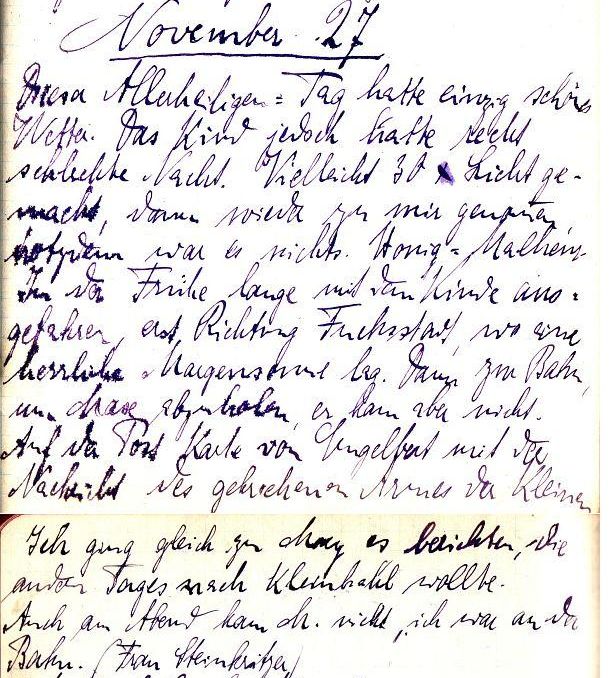 November 27
Dieser Allerheiligen = Tag hatte einzig schönes
Wetter. Das Kind jedoch hatte recht
schlechte Nacht. Vielleicht 30 x Licht ge-
macht, dann wieder zu mir genommen
trotzdem war es nichts. Honig =
In der Frühe lange mit dem Kinde aus =
gefahren, erst Richtung Fuchsstadt, wo eine
herrliche Morgensonne lag. Dann zur Bahn,
um abzuholen, er kam aber nicht.
Auf der Post Karte von Engelbert mit der
Nachricht des gebrochenen Armes der Kleinen
Ich ging gleich zu May es berichten, die
andern Tages nach Kleinkahl wollte.
Auch am Abend kam M. nicht, ich war an der
Bahn. (Frau Steinkritzer)